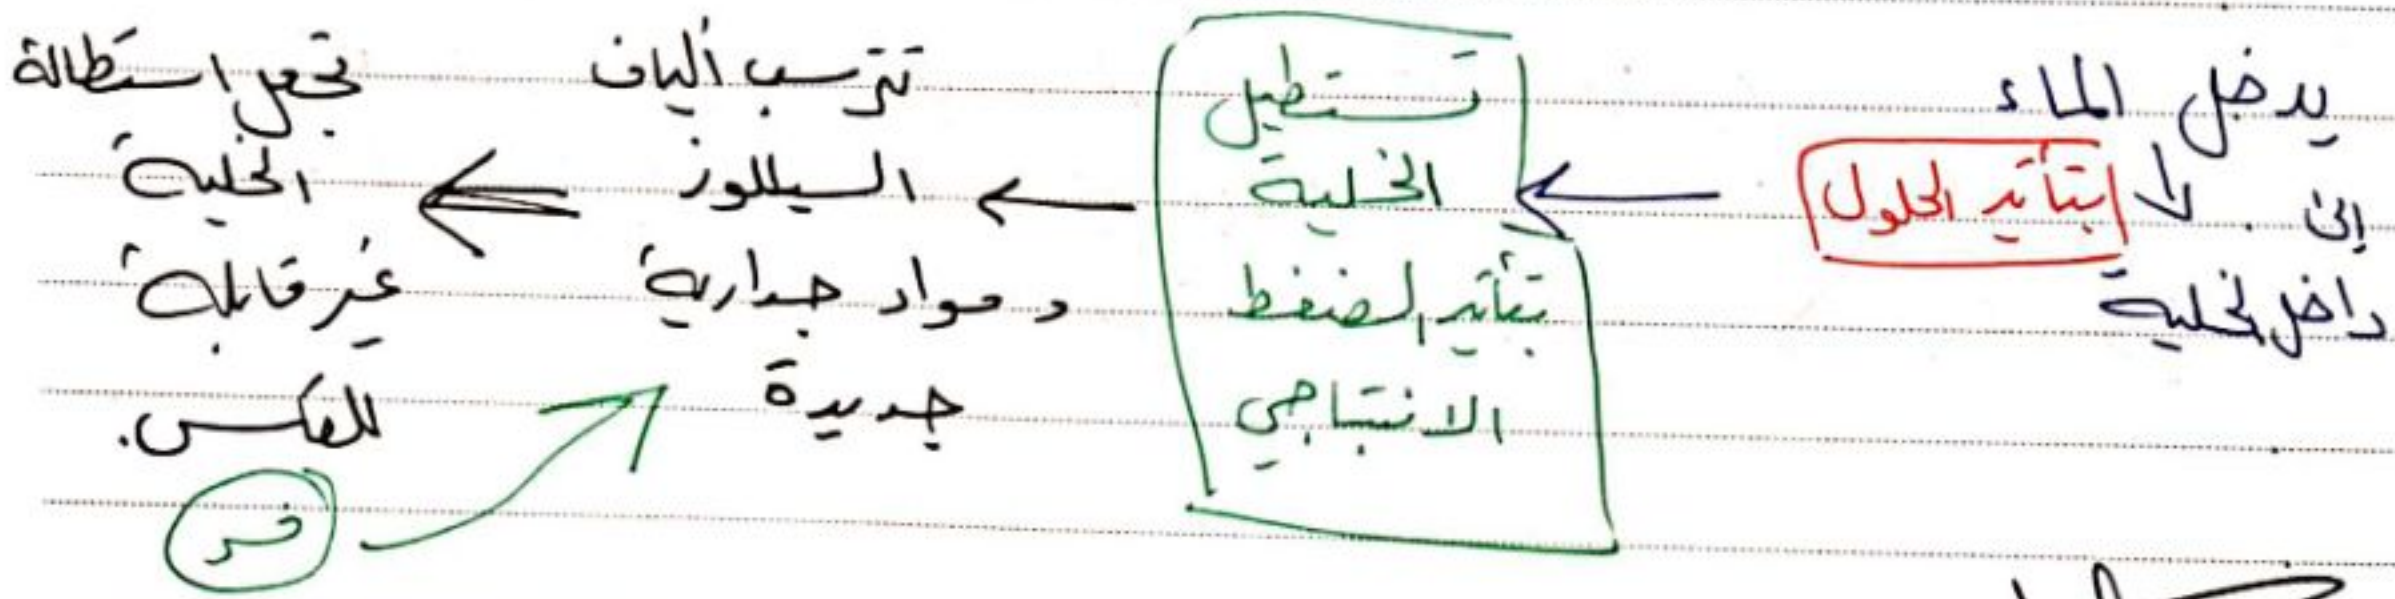 يدخل الماء
إلى
داخل الخلية
بتأثير الحلول
تستطيل
الخلية
بتأثير الضغط
الانتباجي
تترسب ألياف
السيللوز
ومواد جدارية
جديدة
تجعل استطالة
الخلية
غير قابلة
للعكس.
فسر